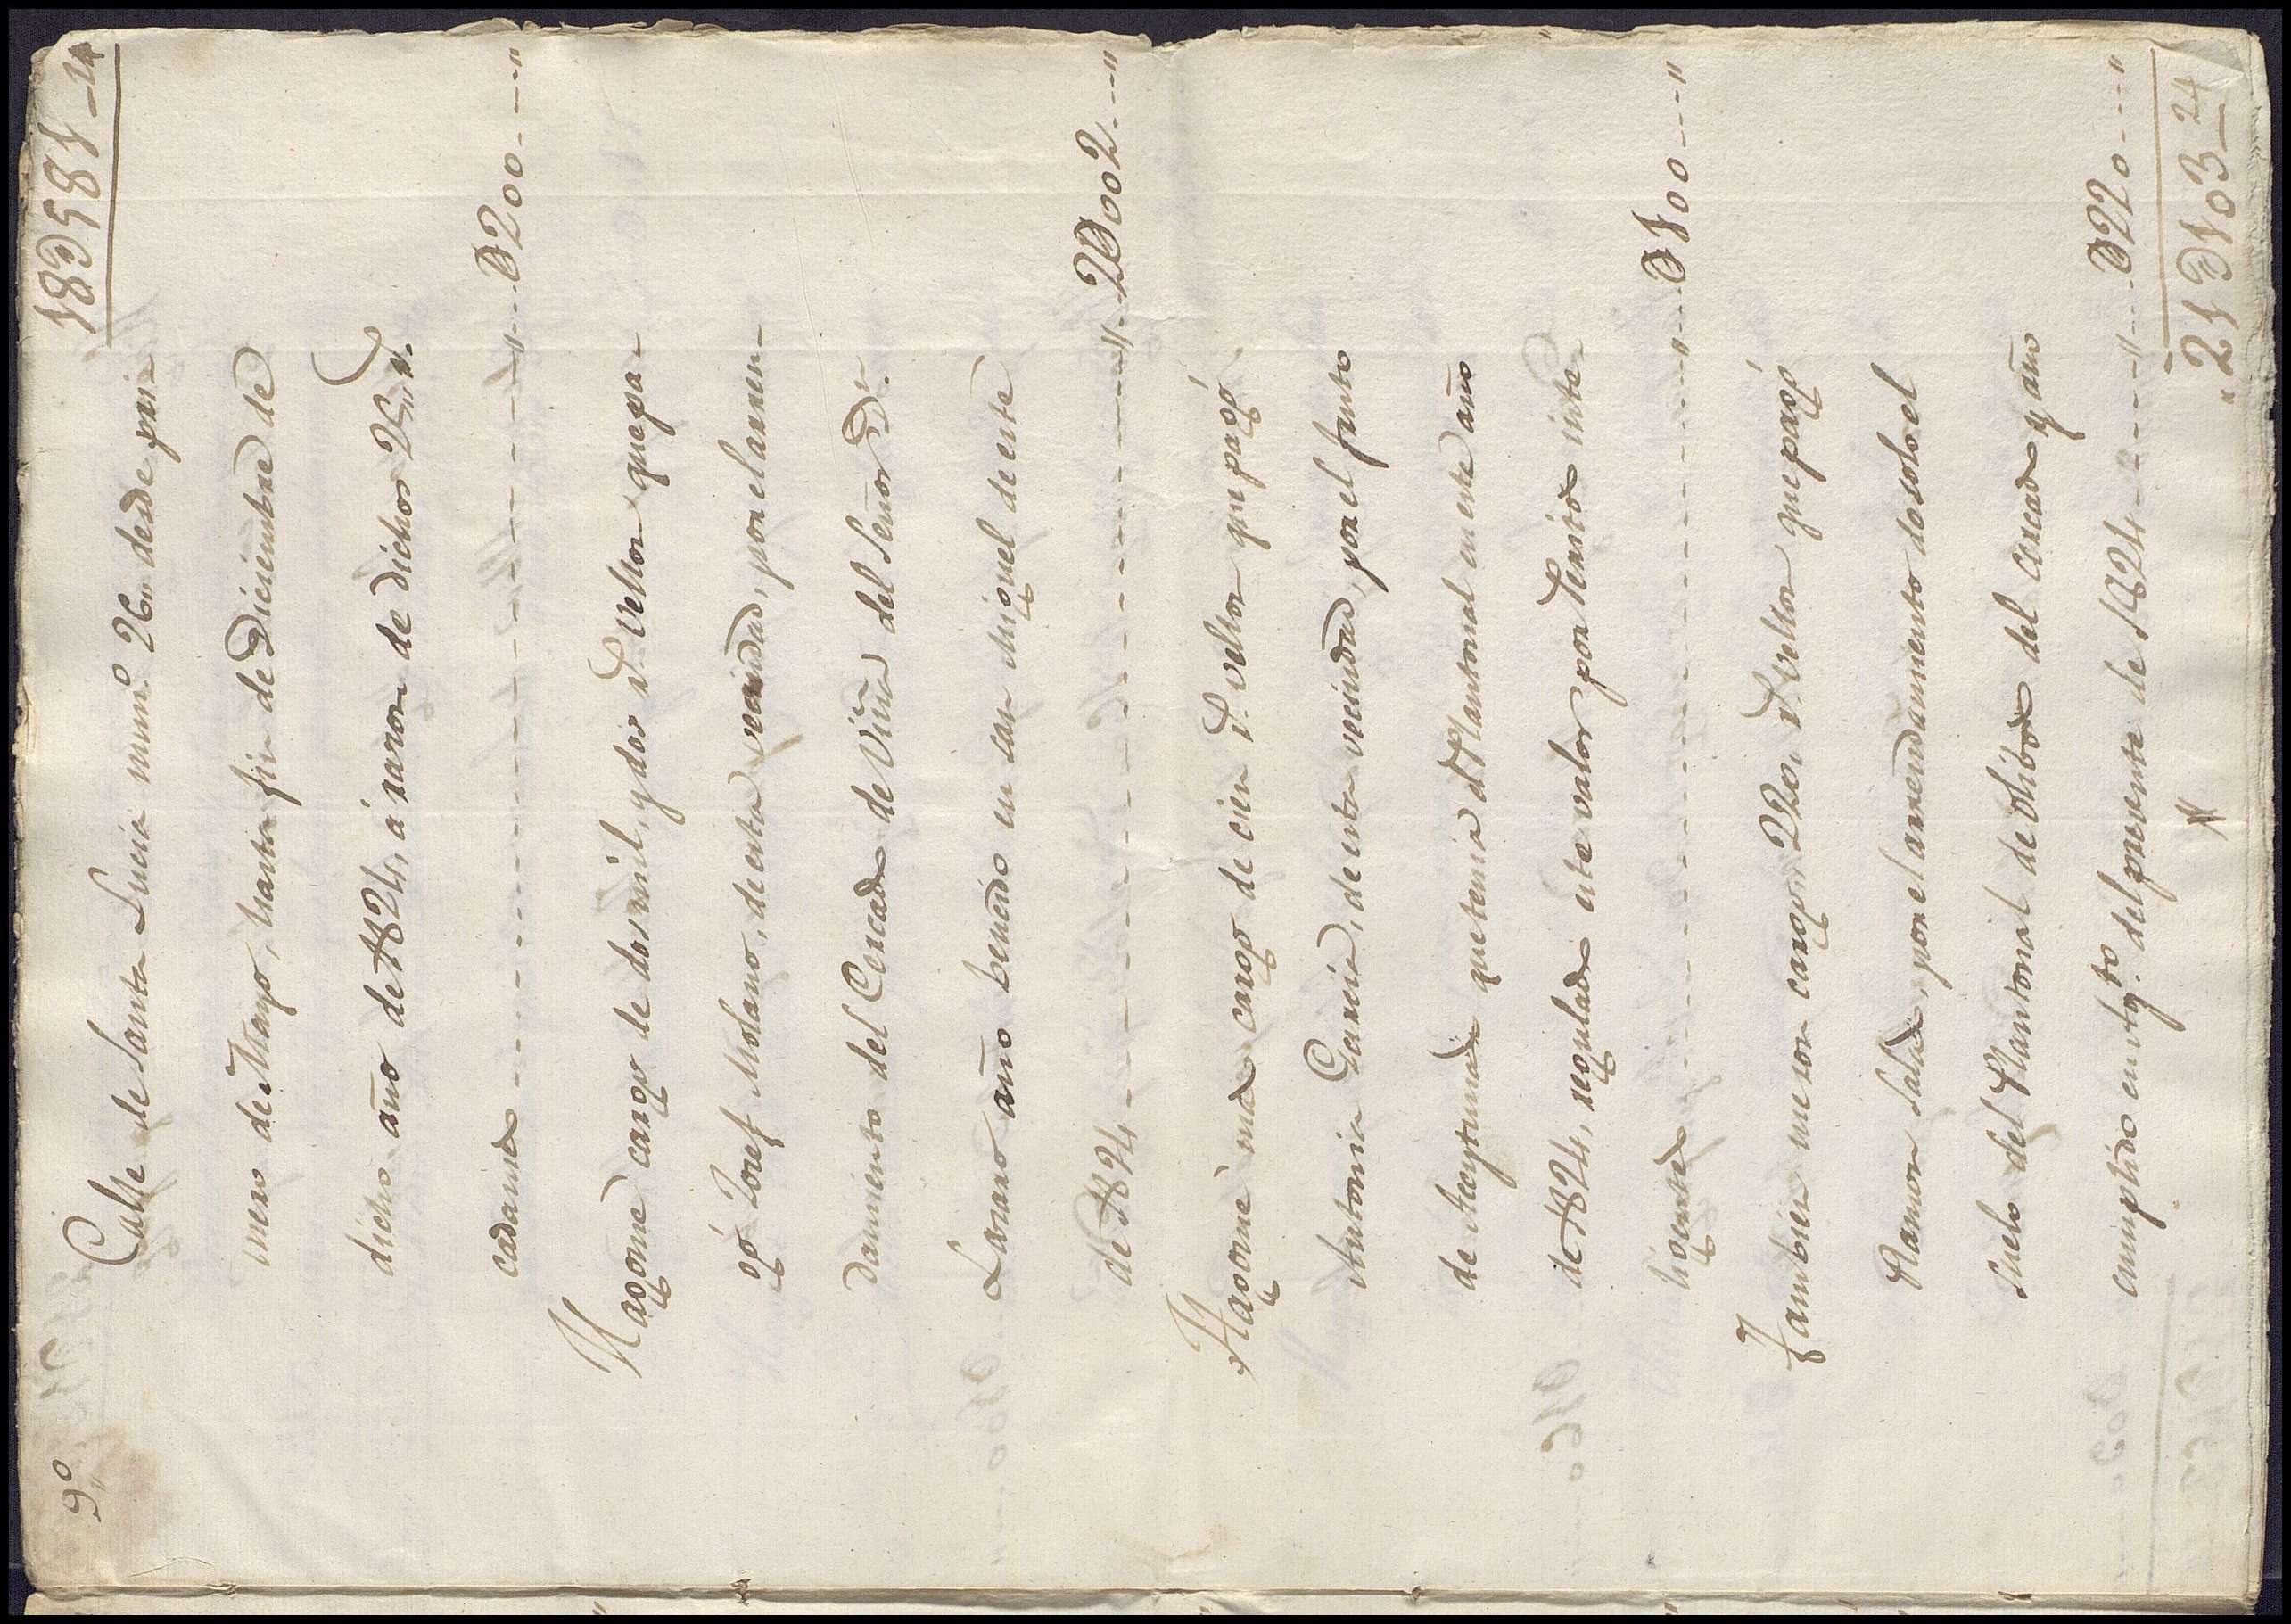 9,,º
18D581_24
Calle de Santa Lucia numº. 26,, desde pri-
mero de Mayo, hasta fin de Diciembre de
dicho año de 1824, á razon de dichos 25,, r.
cadames - - - - - - - - - - - - - - " - - - D200 - - - "
Hagome cargo de dos mil, y dos r.s vellon que pa-
gó Josef Molano, de esta vecindad, por el arren-
damiento del Cercado de Viña del Señor Dn.
Lazaro año bencido en San Miguel de este
de 1824 - - - - - - - - - - - - - - " - - 2D002 - - - "
Hagome mas cargo de cien r.s vellon que pagó
Antonia Garcia, de esta vecindad, por el fruto
de Aceytunas que tenia el Plantonal en este año
de 1824, regulado este valor por Peritos inte-
ligentes - - - - - - - - - - - - - - " - - - D100 - - - "
Tambien me son cargo,, 220,, r.s vellon que pagó
Ramon Salas, por el arrendamiento de solo el
suelo del Plantonal de Olibos del Cercado y año
cumplido en Agto. del presente de 1824 - - - - " - - - D220 - - - "
"21D103_24